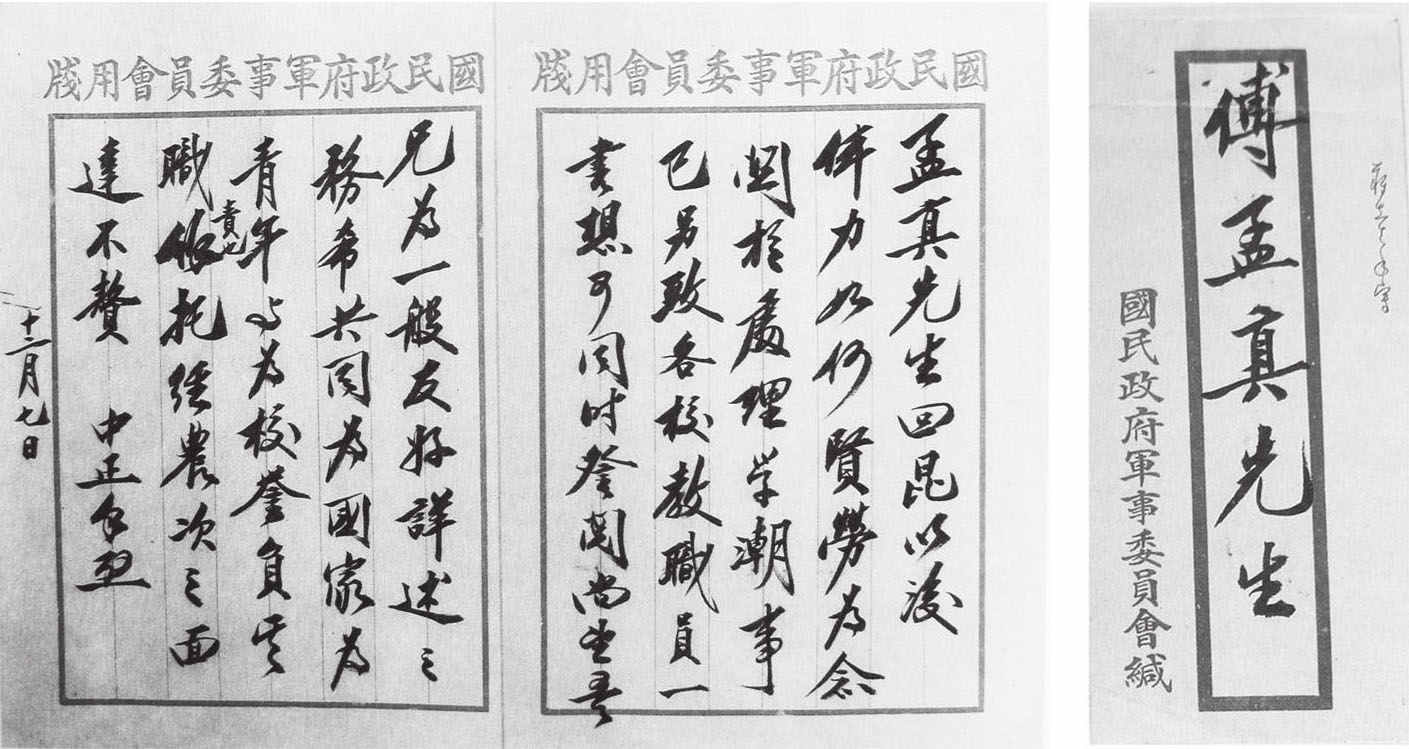 國民政府軍事委員會用牋
孟真先生回昆以後
体力如何賢勞為念
関於處理学潮事
已另致各校教職員一
書想可同时詧閱尚望吾
國民政府軍事委員會用牋
兄為一般友好詳述之
務希共同為國家為
青年与為校誉負其
職責也餘托經農次長面
達不贅 中正手啟
十二月七日
傅孟真先生
國民政府軍事委員會緘